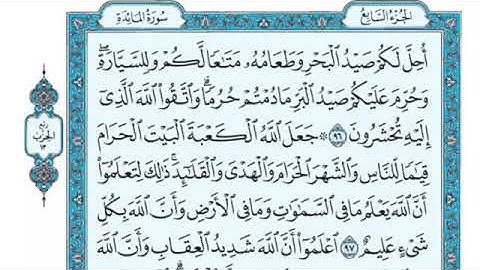 الجُزْءُ السَّابِعُ
سُورَةُ المَائِدَةِ
أُحِلَّ لَكُمْ صَيْدُ الْبَحْرِ وَطَعَامُهُۥ مَتَٰعًا لَّكُمْ وَلِلسَّيَّارَةِۖ
وَحُرِّمَ عَلَيْكُمْ صَيْدُ الْبَرِّ مَا دُمْتُمْ حُرُمًاۗ وَاتَّقُوا اللَّهَ الَّذِىٓ
إِلَيْهِ تُحْشَرُونَ ٩٦ ۞ جَعَلَ اللَّهُ الْكَعْبَةَ الْبَيْتَ الْحَرَامَ
قِيَٰمًا لِّلنَّاسِ وَالشَّهْرَ الْحَرَامَ وَالْهَدْىَ وَالْقَلَٰٓئِدَۚ ذَٰلِكَ لِتَعْلَمُوٓا
أَنَّ اللَّهَ يَعْلَمُ مَا فِى السَّمَٰوَٰتِ وَمَا فِى الْأَرْضِ وَأَنَّ اللَّهَ بِكُلِّ
شَىْءٍ عَلِيمٌ ٩٧ اعْلَمُوٓا أَنَّ اللَّهَ شَدِيدُ الْعِقَابِ وَأَنَّ اللَّهَ
ربع
الحزب
١٣